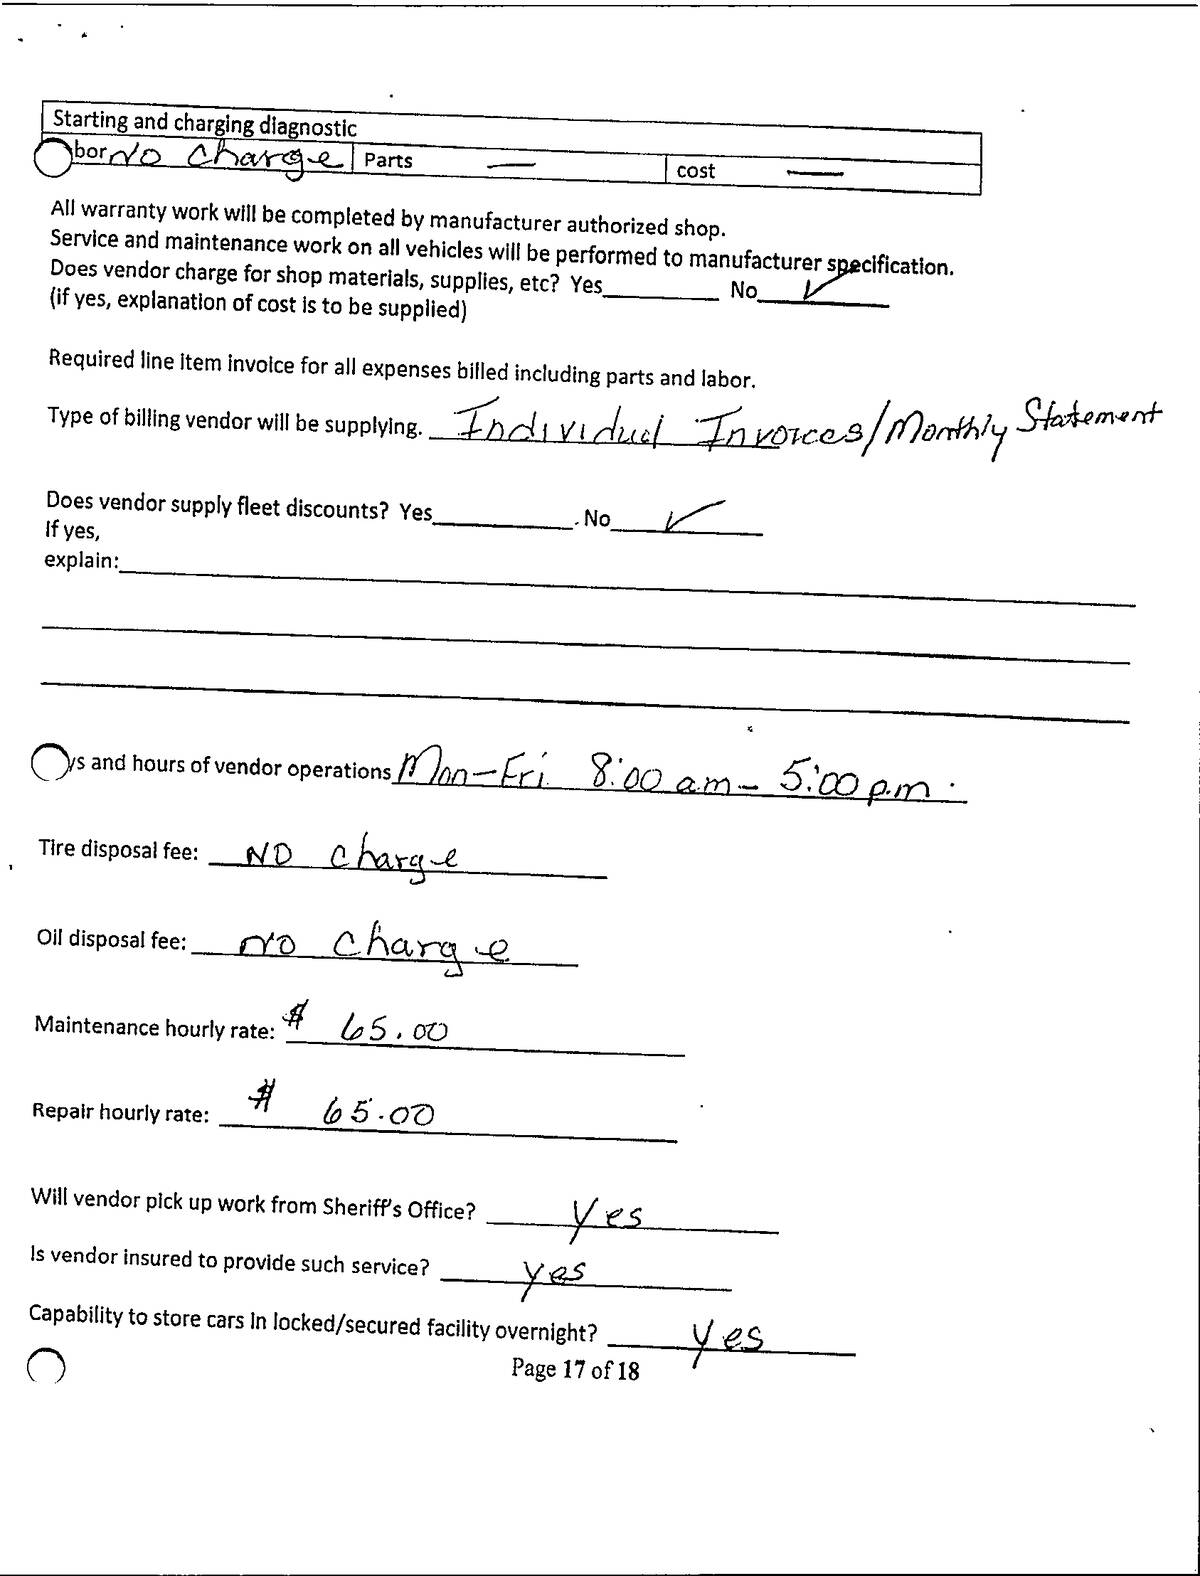 Starting and charging diagnostic
bor No Charge Parts — cost —
All warranty work will be completed by manufacturer authorized shop.
Service and maintenance work on all vehicles will be performed to manufacturer specification.
Does vendor charge for shop materials, supplies, etc? Yes________ No____✓____
(if yes, explanation of cost is to be supplied)
Required line item invoice for all expenses billed including parts and labor.
Type of billing vendor will be supplying. Individual Invoices/Monthly Statement
Does vendor supply fleet discounts? Yes________. No____✓____
If yes,
explain:
ys and hours of vendor operations Mon-Fri 8:00 a.m - 5:00 p.m.
Tire disposal fee: NO Charge
Oil disposal fee: No Charge
Maintenance hourly rate: $ 65.00
Repair hourly rate: $ 65.00
Will vendor pick up work from Sheriff's Office? Yes
Is vendor insured to provide such service? yes
Capability to store cars in locked/secured facility overnight? Yes
Page 17 of 18